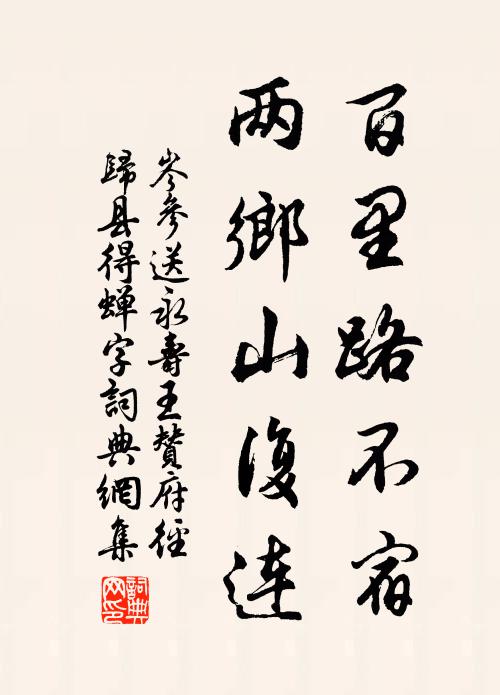 百里路不宿
两鄉山復連
岑參送永壽王贊府徑
歸县得蝉字詞典網集
詞典網印